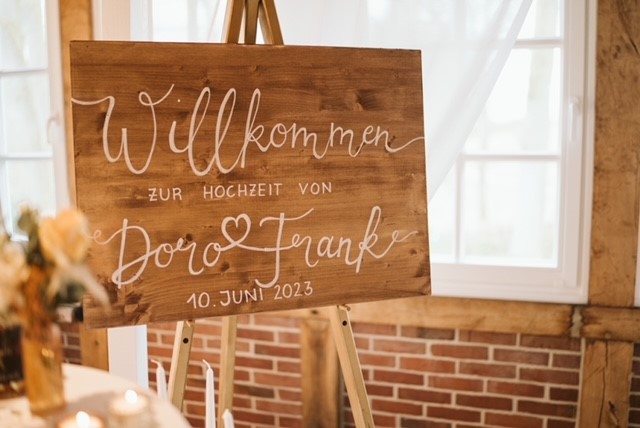 Willkommen
ZUR HOCHZEIT VON
Doro ♡ Frank
10. JUNI 2023